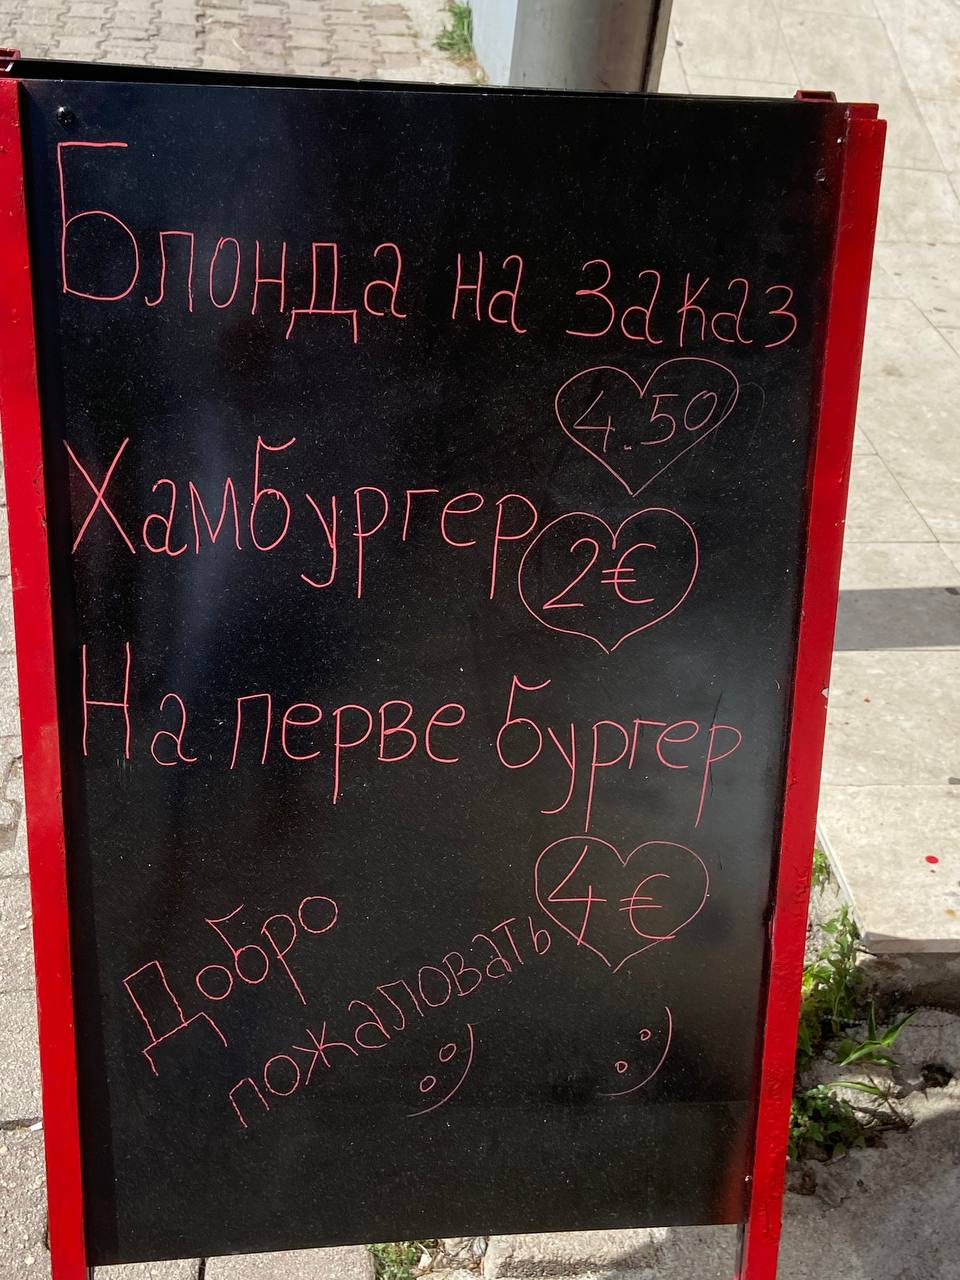 Блонда на заказ
4.50
Хамбургер 2€
На перве бургер
4€
Добро
пожаловать
:) :)